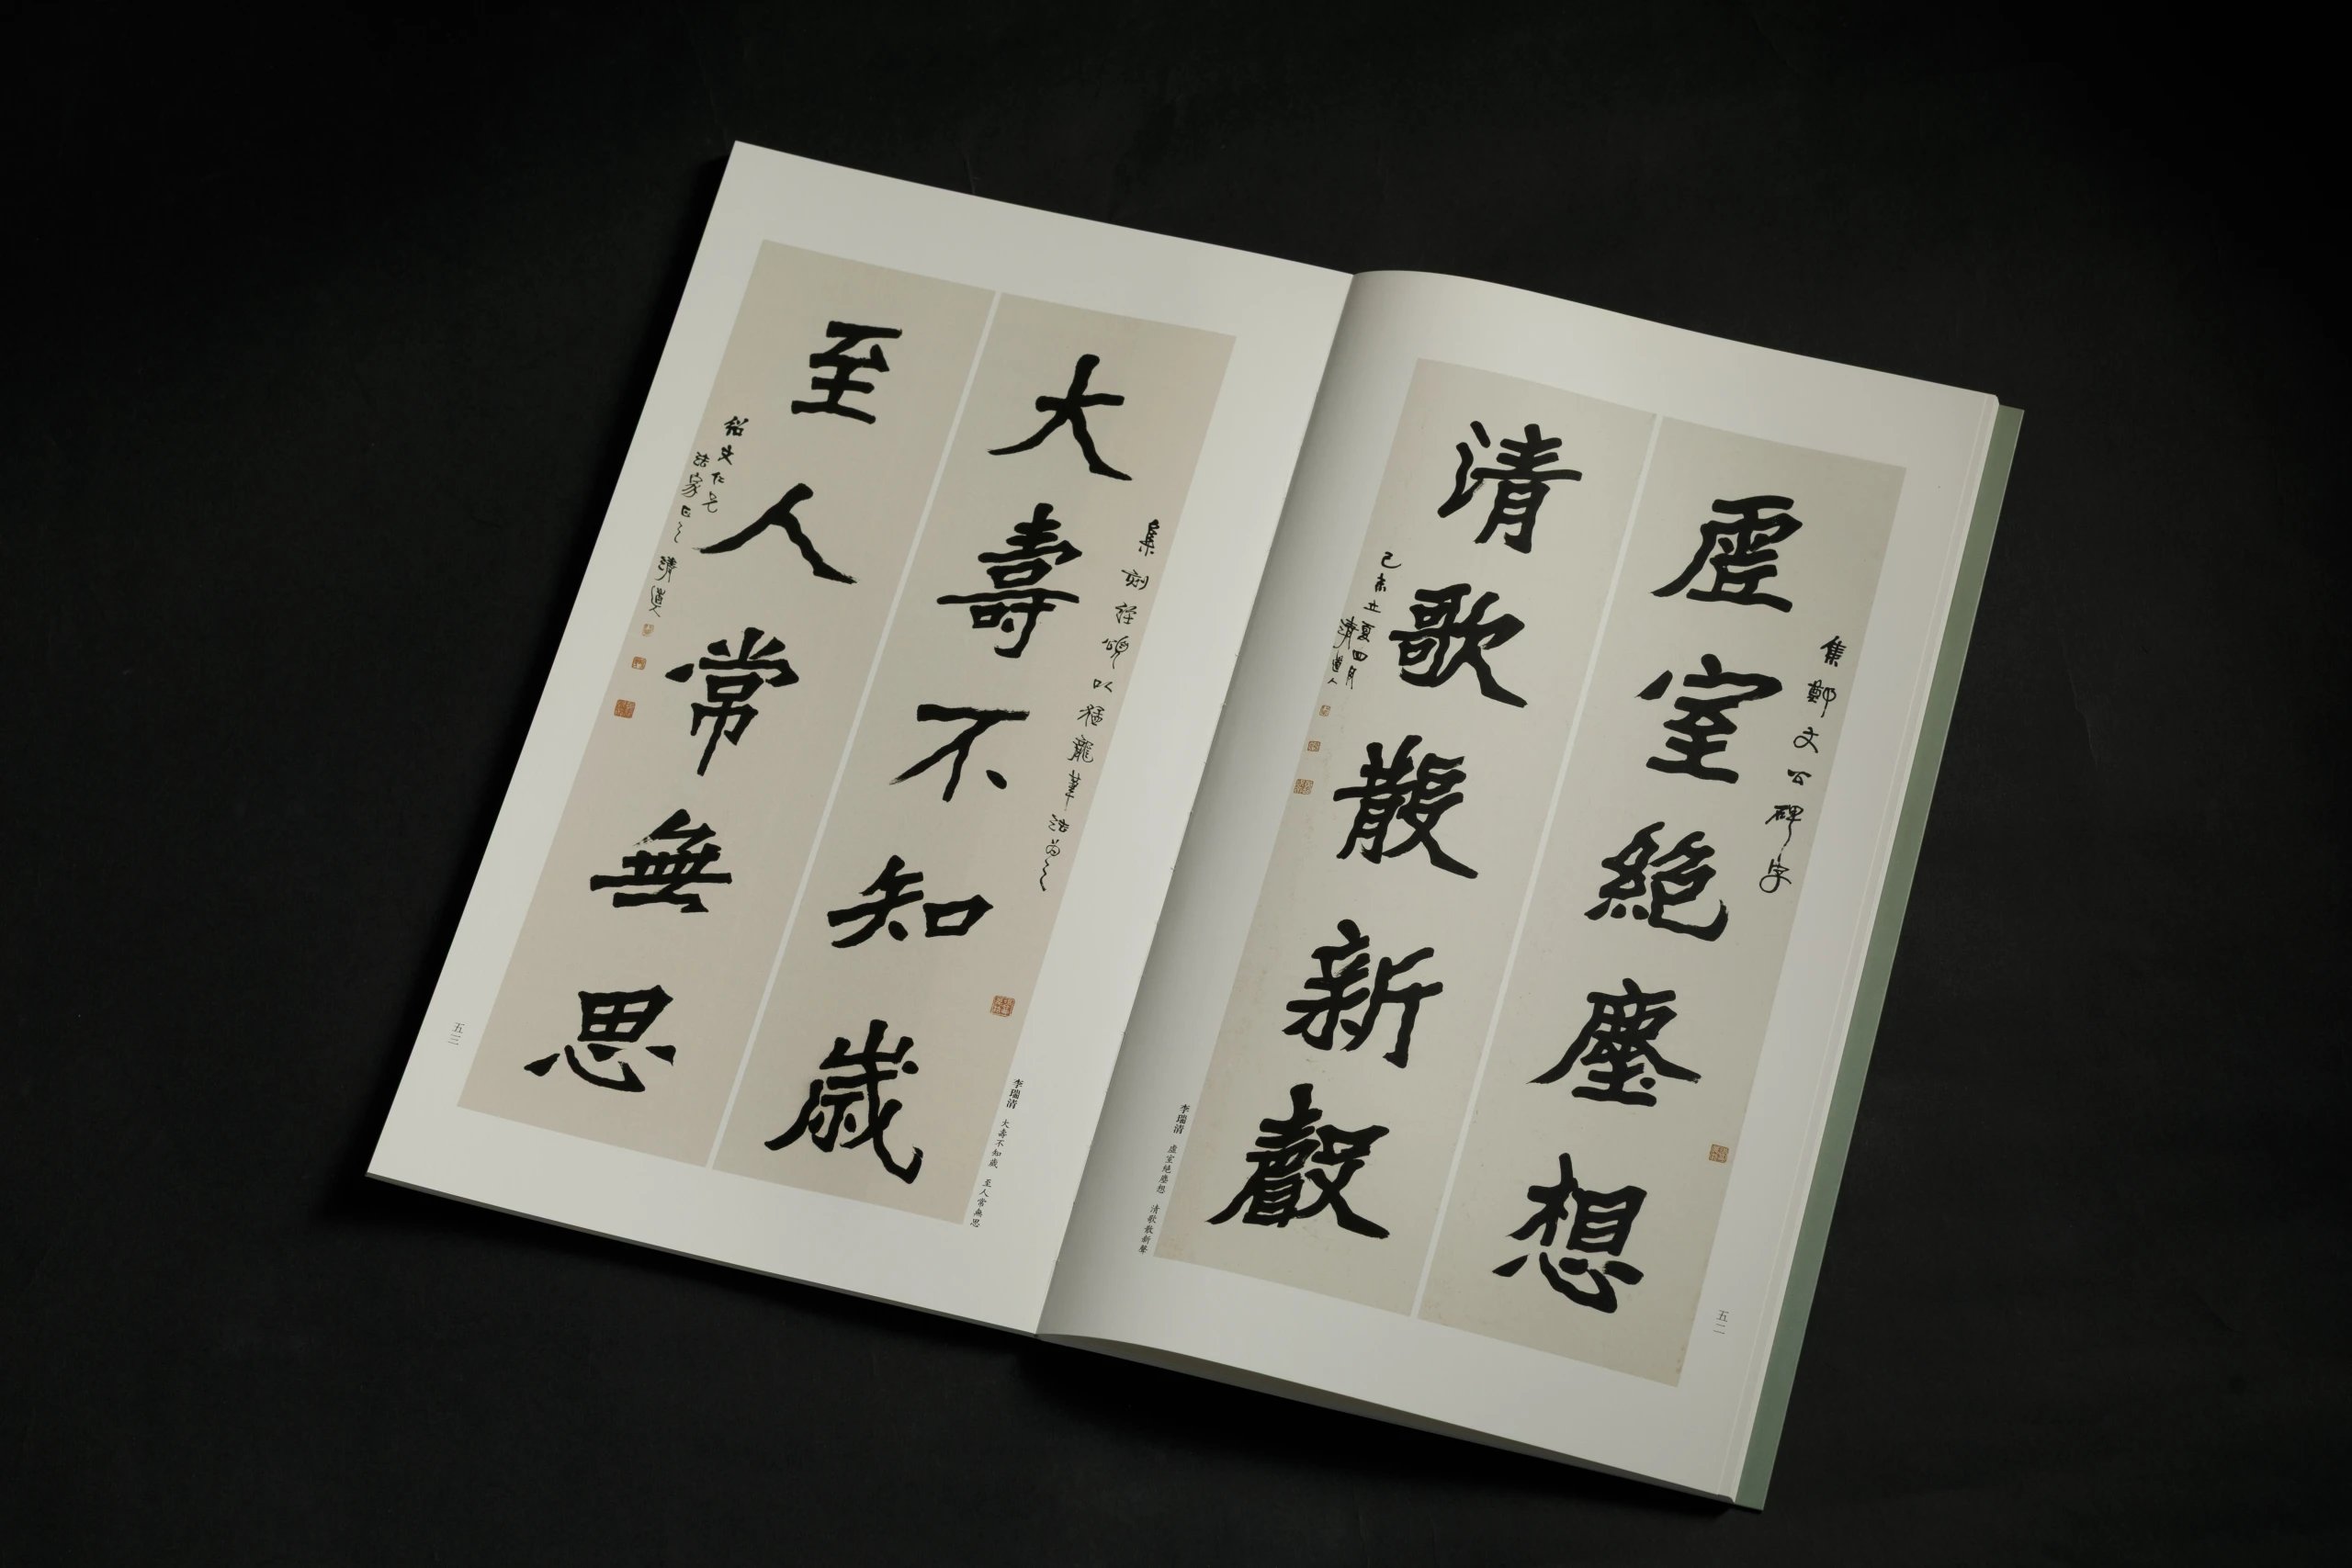 集鄭文公碑字
虛室絕塵想
清歌散新聲
己未立夏四月
清道人
李瑞清 虛室絕塵想 清歌散新聲
五二
集刻經頌以猛龍筆法為之
大壽不知歲
至人常無思
仁兄
法家正之 清道人
李瑞清 大壽不知歲 至人常無思
五三